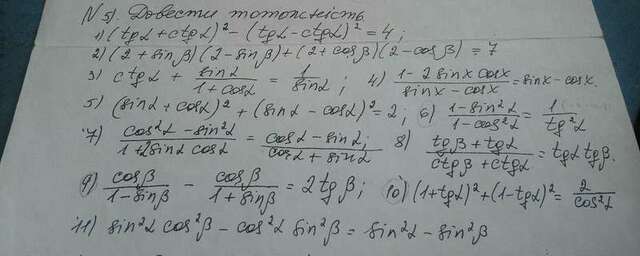 N 5). Довести тотожність
1) (tgα + ctgα)² − (tgα − ctgα)² = 4;
2) (2 + sinβ)(2 − sinβ) + (2 + cosβ)(2 − cosβ) = 7
3) ctgα + sinα/(1 + cosα) = 1/sinα; 4) (1 − 2 sinx cosx)/(sinx − cosx) = sinx − cosx.
5) (sinα + cosα)² + (sinα − cosα)² = 2; 6) (1 − sin²α)/(1 − cos²α) = 1/tg²α
7) (cos²α − sin²α)/(1 + 2sinα cosα) = (cosα − sinα)/(cosα + sinα); 8) (tgβ + tgα)/(ctgβ + ctgα) = tgα tgβ.
9) cosβ/(1 − sinβ) − cosβ/(1 + sinβ) = 2 tgβ; 10) (1 + tgα)² + (1 − tgα)² = 2/cos²α
11) sin²α cos²β − cos²α sin²β = sin²α − sin²β